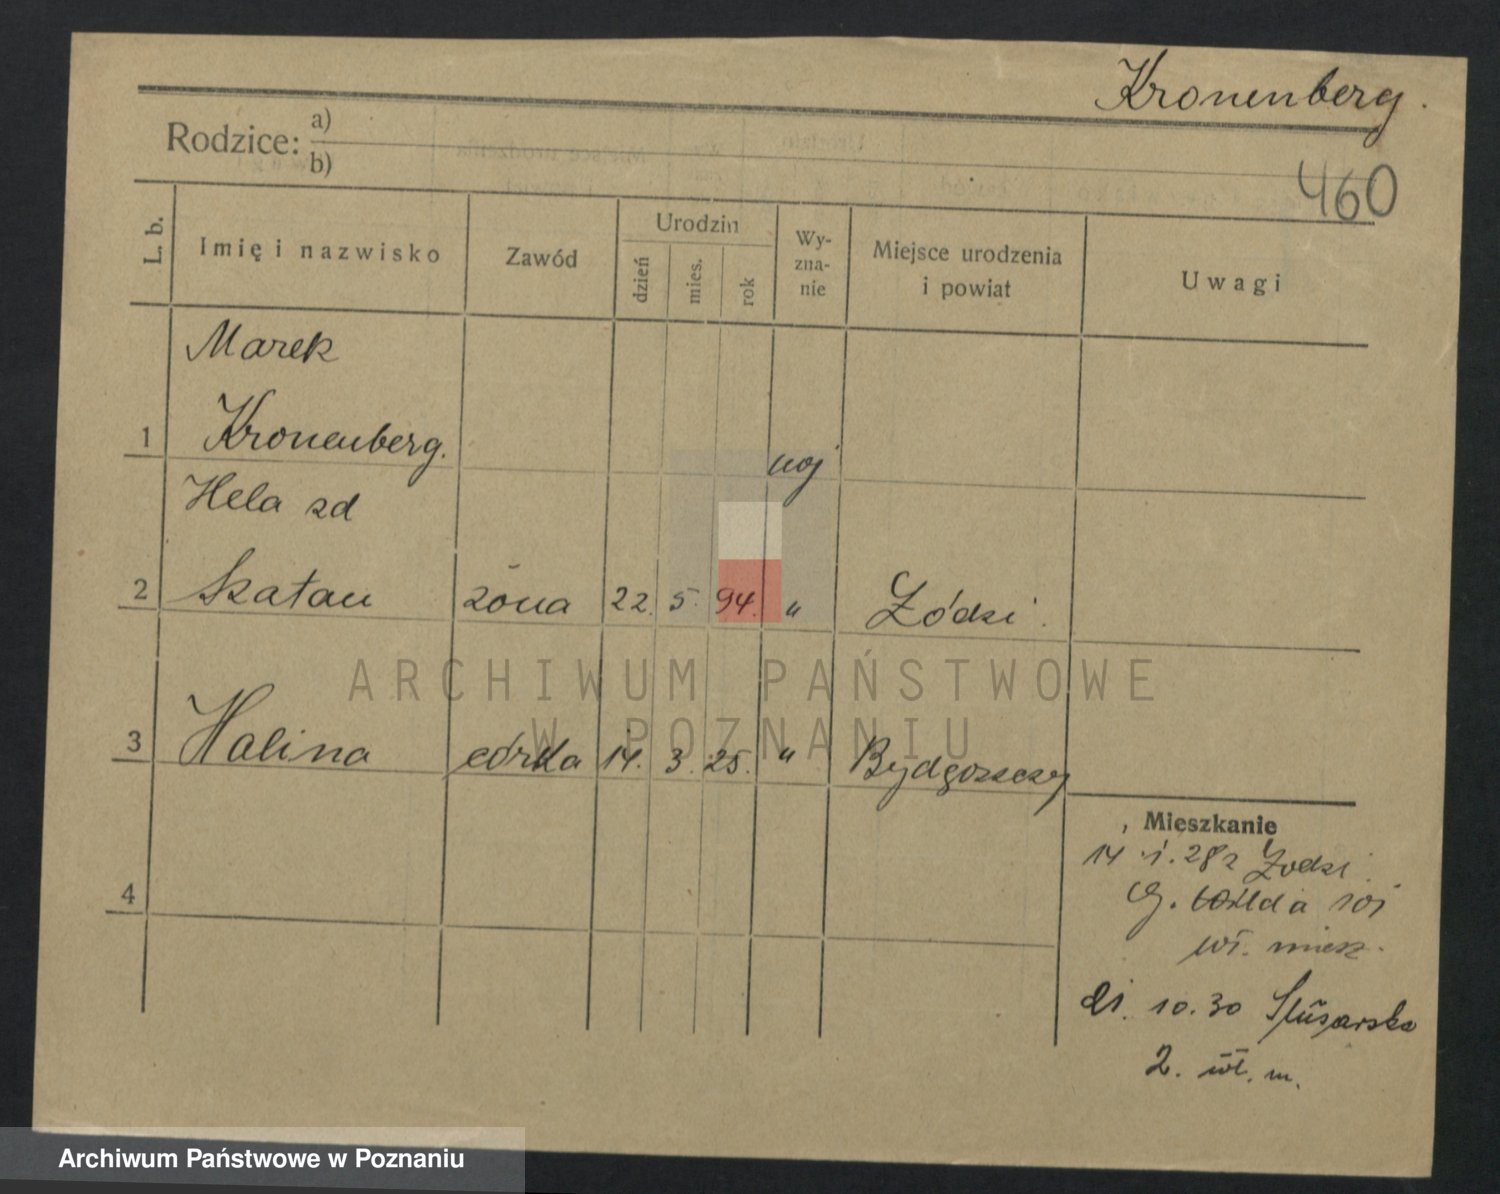 Kronenberg.
Rodzice: a)
b)
460
L. b.
Imię i nazwisko
Zawód
Urodzin
dzień
mies.
rok
Wy-
zna-
nie
Miejsce urodzenia
i powiat
Uwagi
Marek
1 Kronenberg.
moj
Hela zd
2 Szatan żona 22. 5. 94. " Łódzi.
3 Halina córka 14. 3. 25. " Bydgoszczy
4
Mieszkanie
14. 1. 28 z Łodzi
G. Wilda 101
wł. miesz.
21. 10. 30 Ślusarska
2. wł. m.
ARCHIWUM PAŃSTWOWE
W POZNANIU
Archiwum Państwowe w Poznaniu